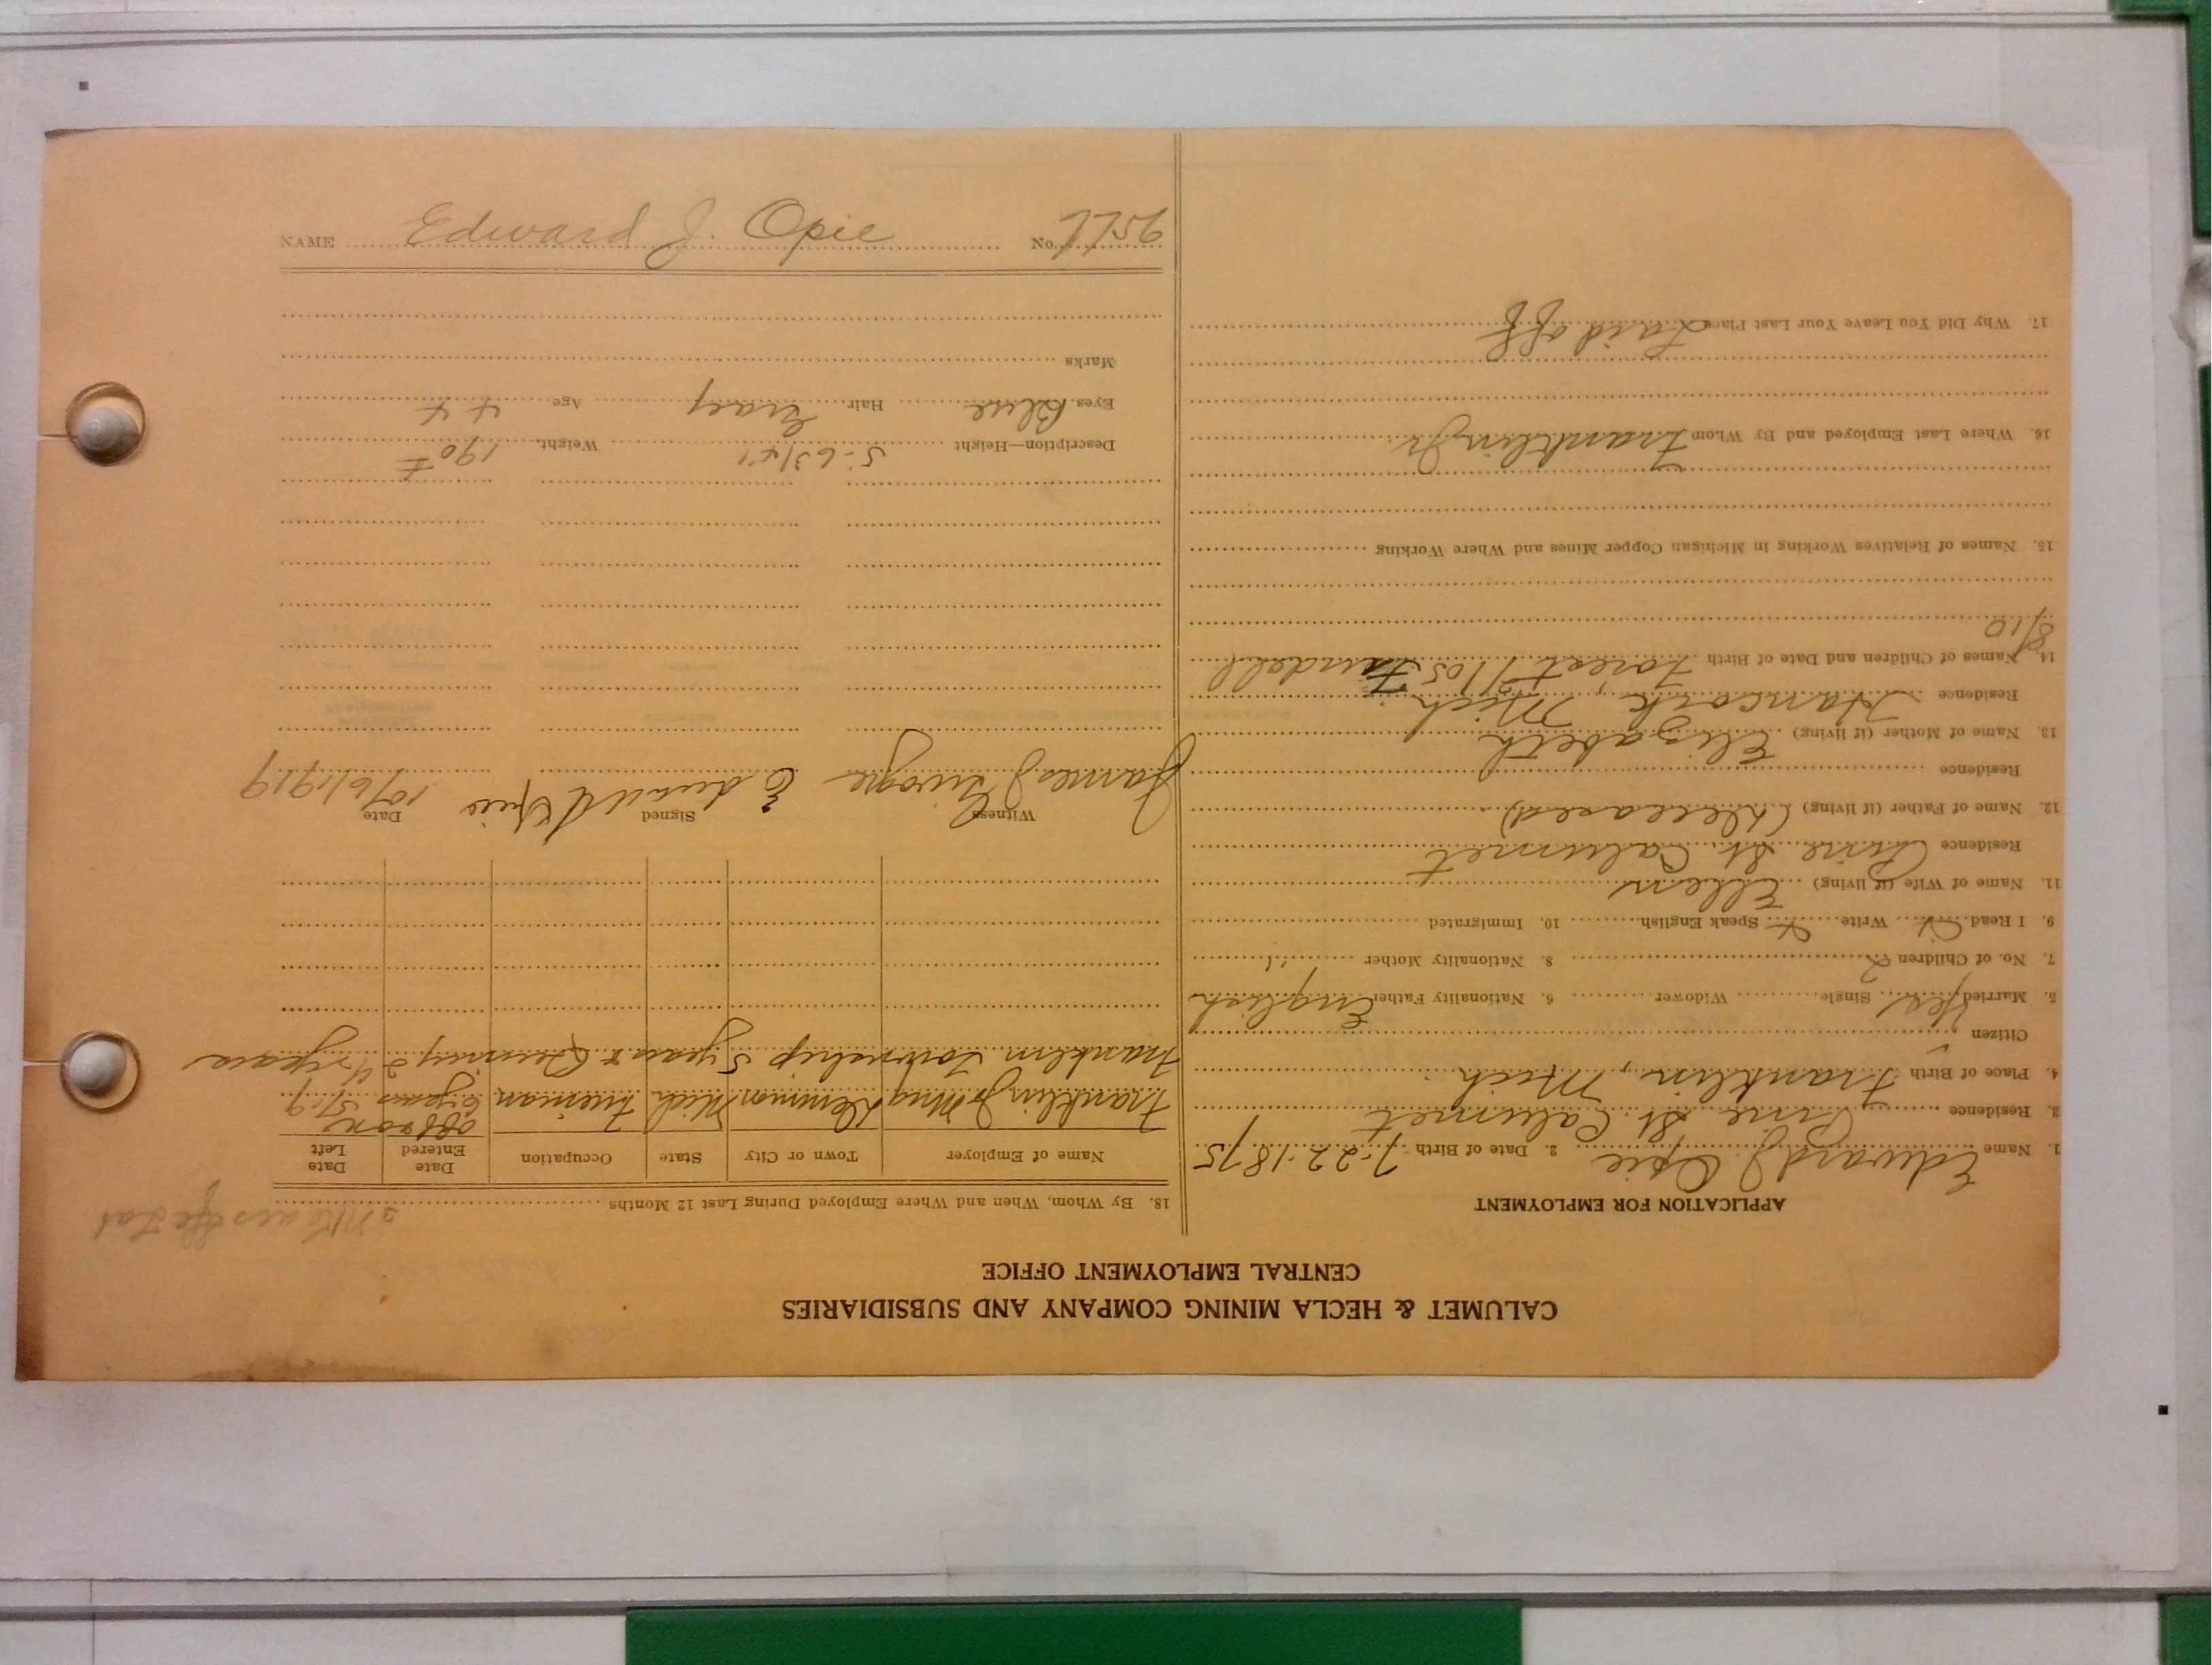 CALUMET & HECLA MINING COMPANY AND SUBSIDIARIES
CENTRAL EMPLOYMENT OFFICE
APPLICATION FOR EMPLOYMENT
1. Name Edward J Opie 2. Date of Birth 7-22-1875
3. Residence Pine St. Calumet
4. Place of Birth Franklin, Mich.
Citizen
5. Married Yes Single Widower 6. Nationality Father English
7. No. of Children 2 8. Nationality Mother "
9. I Read x Write x Speak English 10. Immigrated
11. Name of Wife (if living) Ellen
Residence Pine St. Calumet
12. Name of Father (if living) (Deceased)
Residence
13. Name of Mother (if living) Elizabeth
Residence Hancock, Mich.
14. Names of Children and Date of Birth Forest 1/05
8/10
15. Names of Relatives Working in Michigan Copper Mines and Where Working
16. Where Last Employed and By Whom Franklin Jr.
17. Why Did You Leave Your Last Place Laid off
18. By Whom, When and Where Employed During Last 12 Months
Name of Employer Town or City State Occupation Date Entered Date Left
Franklin Jr Mng Demmon Mich Fireman 6 years 5/19
Franklin Township 5 years
years
Witness Signed Date
James Edward J Opie 10/6/1919
Description—Height 5-6 3/4" Weight 190 #
Eyes Blue Hair Gray Age 44
Marks
NAME Edward J. Opie No. 7756